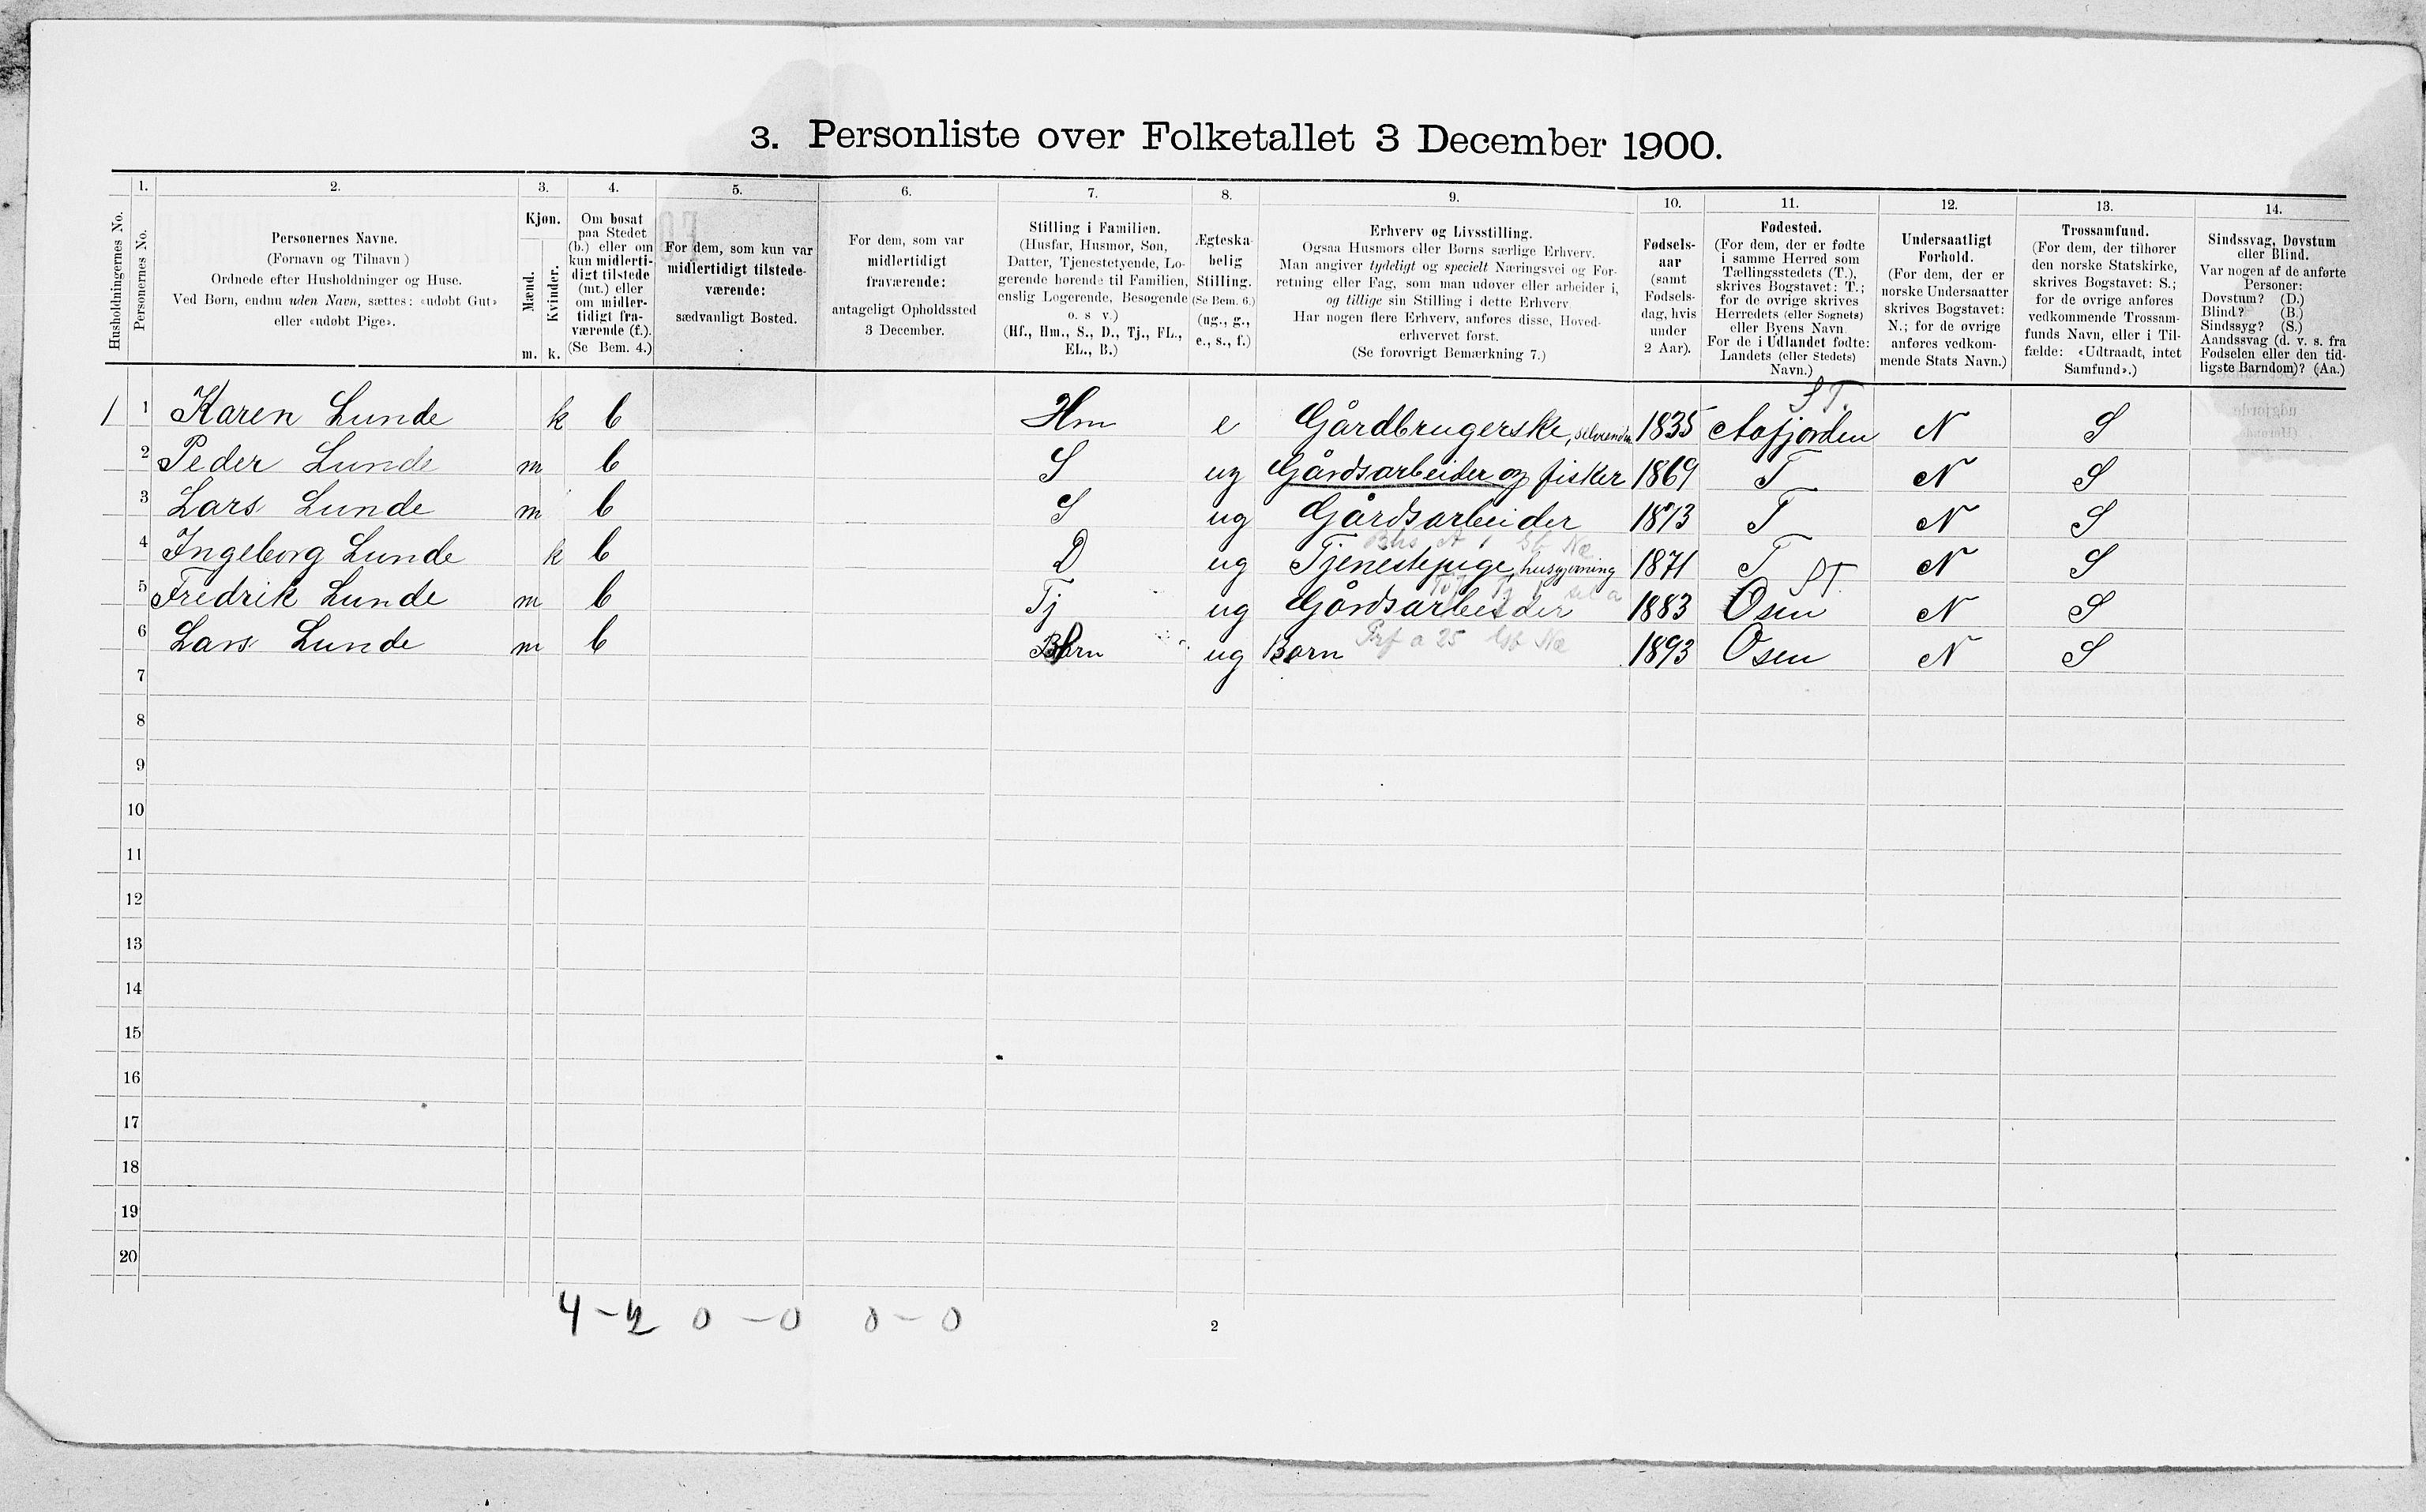 3. Personliste over Folketallet 3 December 1900.
1. 2. 3. 4. 5. 6. 7. 8. 9. 10. 11. 12. 13. 14.
Husholdningernes No.
Personernes No.
Personernes Navne.
(Fornavn og Tilnavn)
Ordnede efter Husholdninger og Huse.
Ved Børn, endnu uden Navn, sættes: «udøbt Gut»
eller «udøbt Pige».
Kjøn.
Mænd.
Kvinder.
m. k.
Om bosat
paa Stedet
(b.) eller om
kun midlerti-
digt tilstede
(mt.) eller
om midler-
tidigt fra-
værende (f.).
(Se Bem. 4.)
For dem, som kun var
midlertidigt tilstede-
værende:
sædvanligt Bosted.
For dem, som var
midlertidigt
fraværende:
antageligt Opholdssted
3 December.
Stilling i Familien.
(Husfar, Husmor, Søn,
Datter, Tjenestetyende, Lo-
gerende hørende til Familien,
enslig Logerende, Besøgende
o. s v.)
(Hf., Hm., S., D., Tj., FL.,
EL., B.)
Ægteska-
belig
Stilling.
(Se Bem. 6.)
(ug., g.,
e., s., f.)
Erhverv og Livsstilling.
Ogsaa Husmors eller Børns særlige Erhverv.
Man angiver tydeligt og specielt Næringsvei og For-
retning eller Fag, som man udøver eller arbeider i,
og tillige sin Stilling i dette Erhverv.
Har nogen flere Erhverv, anføres disse, Hoved-
erhvervet først.
(Se forøvrigt Bemærkning 7.)
Fødsels-
aar
(samt
Fødsels-
dag, hvis
under
2 Aar).
Fødested.
(For dem, der er fødte
i samme Herred som
Tællingsstedets (T.),
skrives Bogstavet: T.;
for de øvrige skrives
Herredets (eller Sognets)
eller Byens Navn.
For de i Udlandet fødte:
Landets (eller Stedets)
Navn.)
Undersaatligt
Forhold.
(For dem, der er
norske Undersaatter
skrives Bogstavet:
N.; for de øvrige
anføres vedkom-
mende Stats Navn.)
Trossamfund.
(For dem, der tilhører
den norske Statskirke,
skrives Bogstavet: S.;
for de øvrige anføres
vedkommende Trossam-
funds Navn, eller i Til-
fælde: «Udtraadt, intet
Samfund».)
Sindssvag, Døvstum
eller Blind.
Var nogen af de anførte
Personer:
Døvstum? (D.)
Blind? (B.)
Sindssyg? (S.)
Aandssvag (d. v. s. fra
Fødselen eller den tid-
ligste Barndom)? (Aa.)
ST.
1 1 Karen Lunde k b Hm e Gårdbrugerske, selveiende 1835 Aafjorden N S
2 Peder Lunde m b S ug Gårdsarbeider og fisker 1869 T N S
3 Lars Lunde m b S ug Gårdsarbeider 1873 T N S
4 Ingeborg Lunde k b D ug Tjenestepige, husgjerning 1871 T N S
ST.
5 Fredrik Lunde m b Tj ug Gårdsarbeider 1883 Osen N S
6 Lars Lunde m b Barn ug Barn 1893 Osen N S
7
8
9
10
11
12
13
14
15
16
17
18
19
20
4 - 2 0 - 0 0 - 0
2